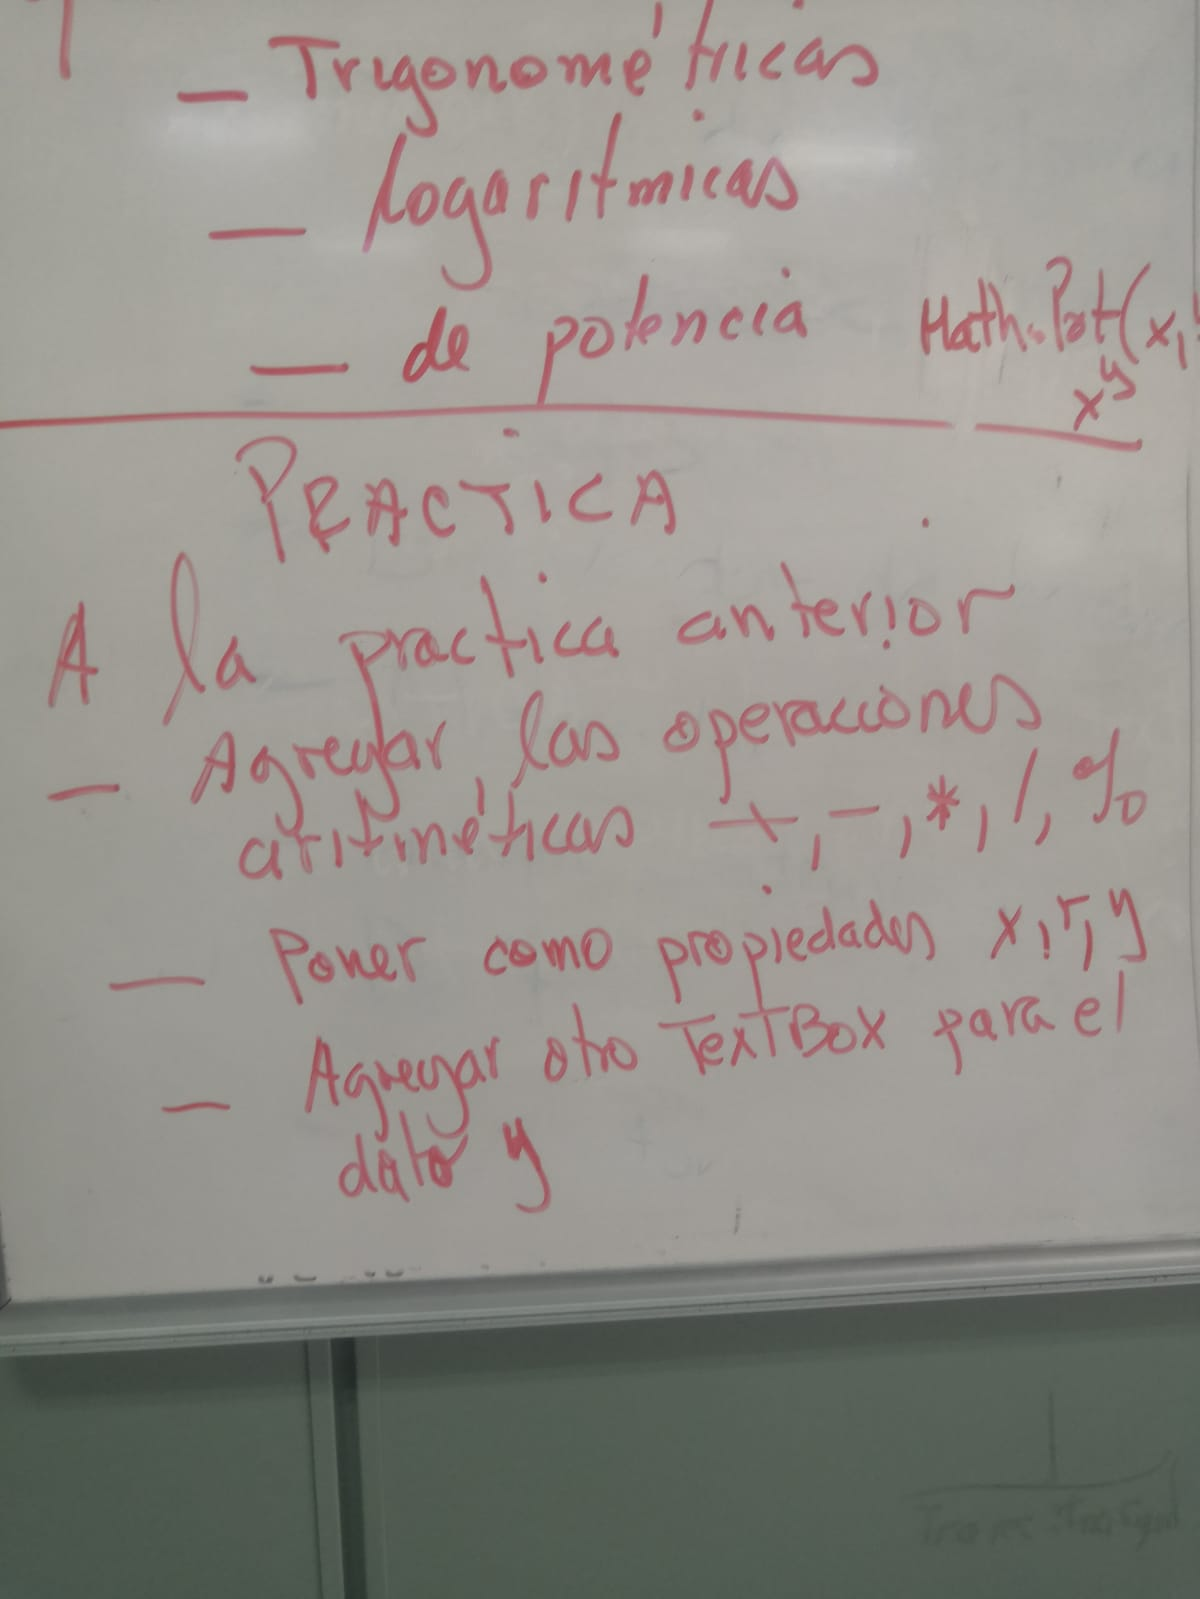 — Trigonométricas
— Logarítmicas
— de potencia Math.Pot(x,
x^y
PRACTICA
A la practica anterior
— Agregar las operaciones
aritméticas +, -, *, /, %
— Poner como propiedades x, r, y
— Agregar otro TextBox para el
dato y